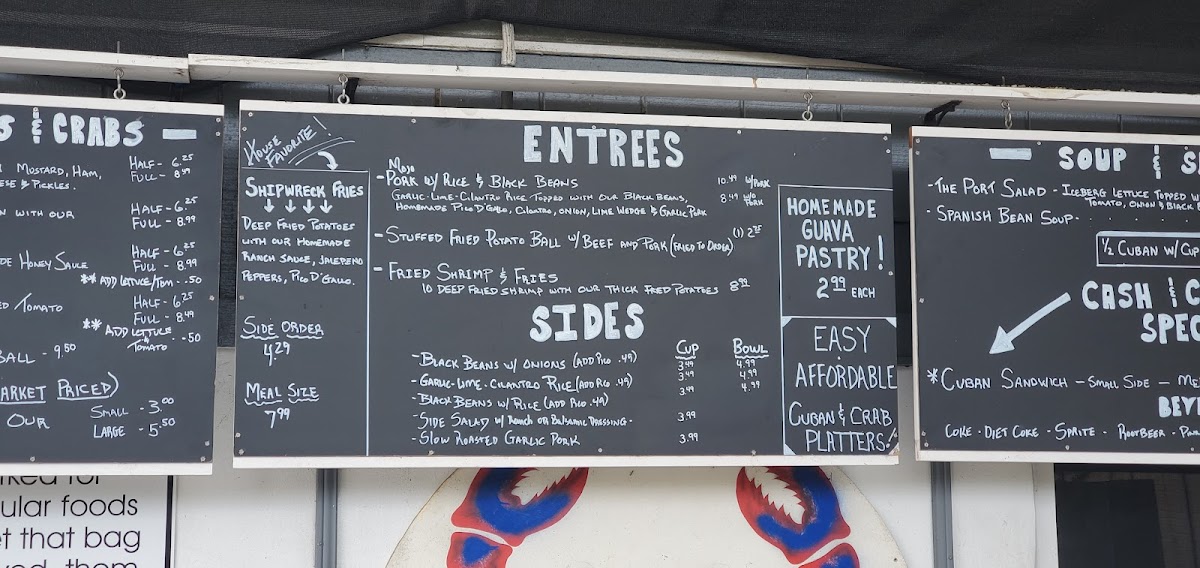 S & CRABS
MUSTARD, HAM,
ESE & PICKLES.
HALF - 6.25
FULL - 8.99
N WITH OUR
HALF - 6.25
FULL - 8.99
DE HONEY SAUCE
HALF - 6.25
FULL - 8.99
** ADD LETTUCE/TOM - .50
ED TOMATO
HALF - 6.25
FULL - 8.49
** ADD LETTUCE
& TOMATO - .50
BALL - 9.50
ARKET PRICED)
OUR
SMALL - 3.00
LARGE - 5.50
HOUSE
FAVORITE!
SHIPWRECK FRIES
DEEP FRIED POTATOES
WITH OUR HOMEMADE
RANCH SAUCE, JALEPENO
PEPPERS, PICO D'GALLO.
SIDE ORDER
4.29
MEAL SIZE
7.99
ENTREES
MOJO
- PORK W/ RICE & BLACK BEANS 10.49 W/PORK
GARLIC-LIME-CILANTRO RICE TOPPED WITH OUR BLACK BEANS, 8.49 W/O PORK
HOMEMADE PICO D'GALLO, CILANTRO, ONION, LIME WEDGE & GARLIC PORK
- STUFFED FRIED POTATO BALL W/ BEEF AND PORK (FRIED TO ORDER) (1) 2.75
- FRIED SHRIMP & FRIES
10 DEEP FRIED SHRIMP WITH OUR THICK FRIED POTATOES 8.99
SIDES
CUP BOWL
- BLACK BEANS W/ ONIONS (ADD PICO .49) 3.49 4.99
- GARLIC-LIME-CILANTRO RICE (ADD PICO .49) 3.49 4.99
- BLACK BEANS W/ RICE (ADD PICO .49) 3.49 4.99
- SIDE SALAD W/ RANCH OR BALSAMIC DRESSING - 3.99
- SLOW ROASTED GARLIC PORK 3.99
HOMEMADE
GUAVA
PASTRY!
2.99 EACH
EASY
&
AFFORDABLE
CUBAN & CRAB
PLATTERS!
SOUP & S
- THE PORT SALAD - ICEBERG LETTUCE TOPPED W
TOMATO, ONION & BLACK
- SPANISH BEAN SOUP
1/2 CUBAN W/ CUP
CASH & C
SPEC
* CUBAN SANDWICH - SMALL SIDE - ME
BEV
COKE - DIET COKE - SPRITE - ROOTBEER -
ular foods
t that bag